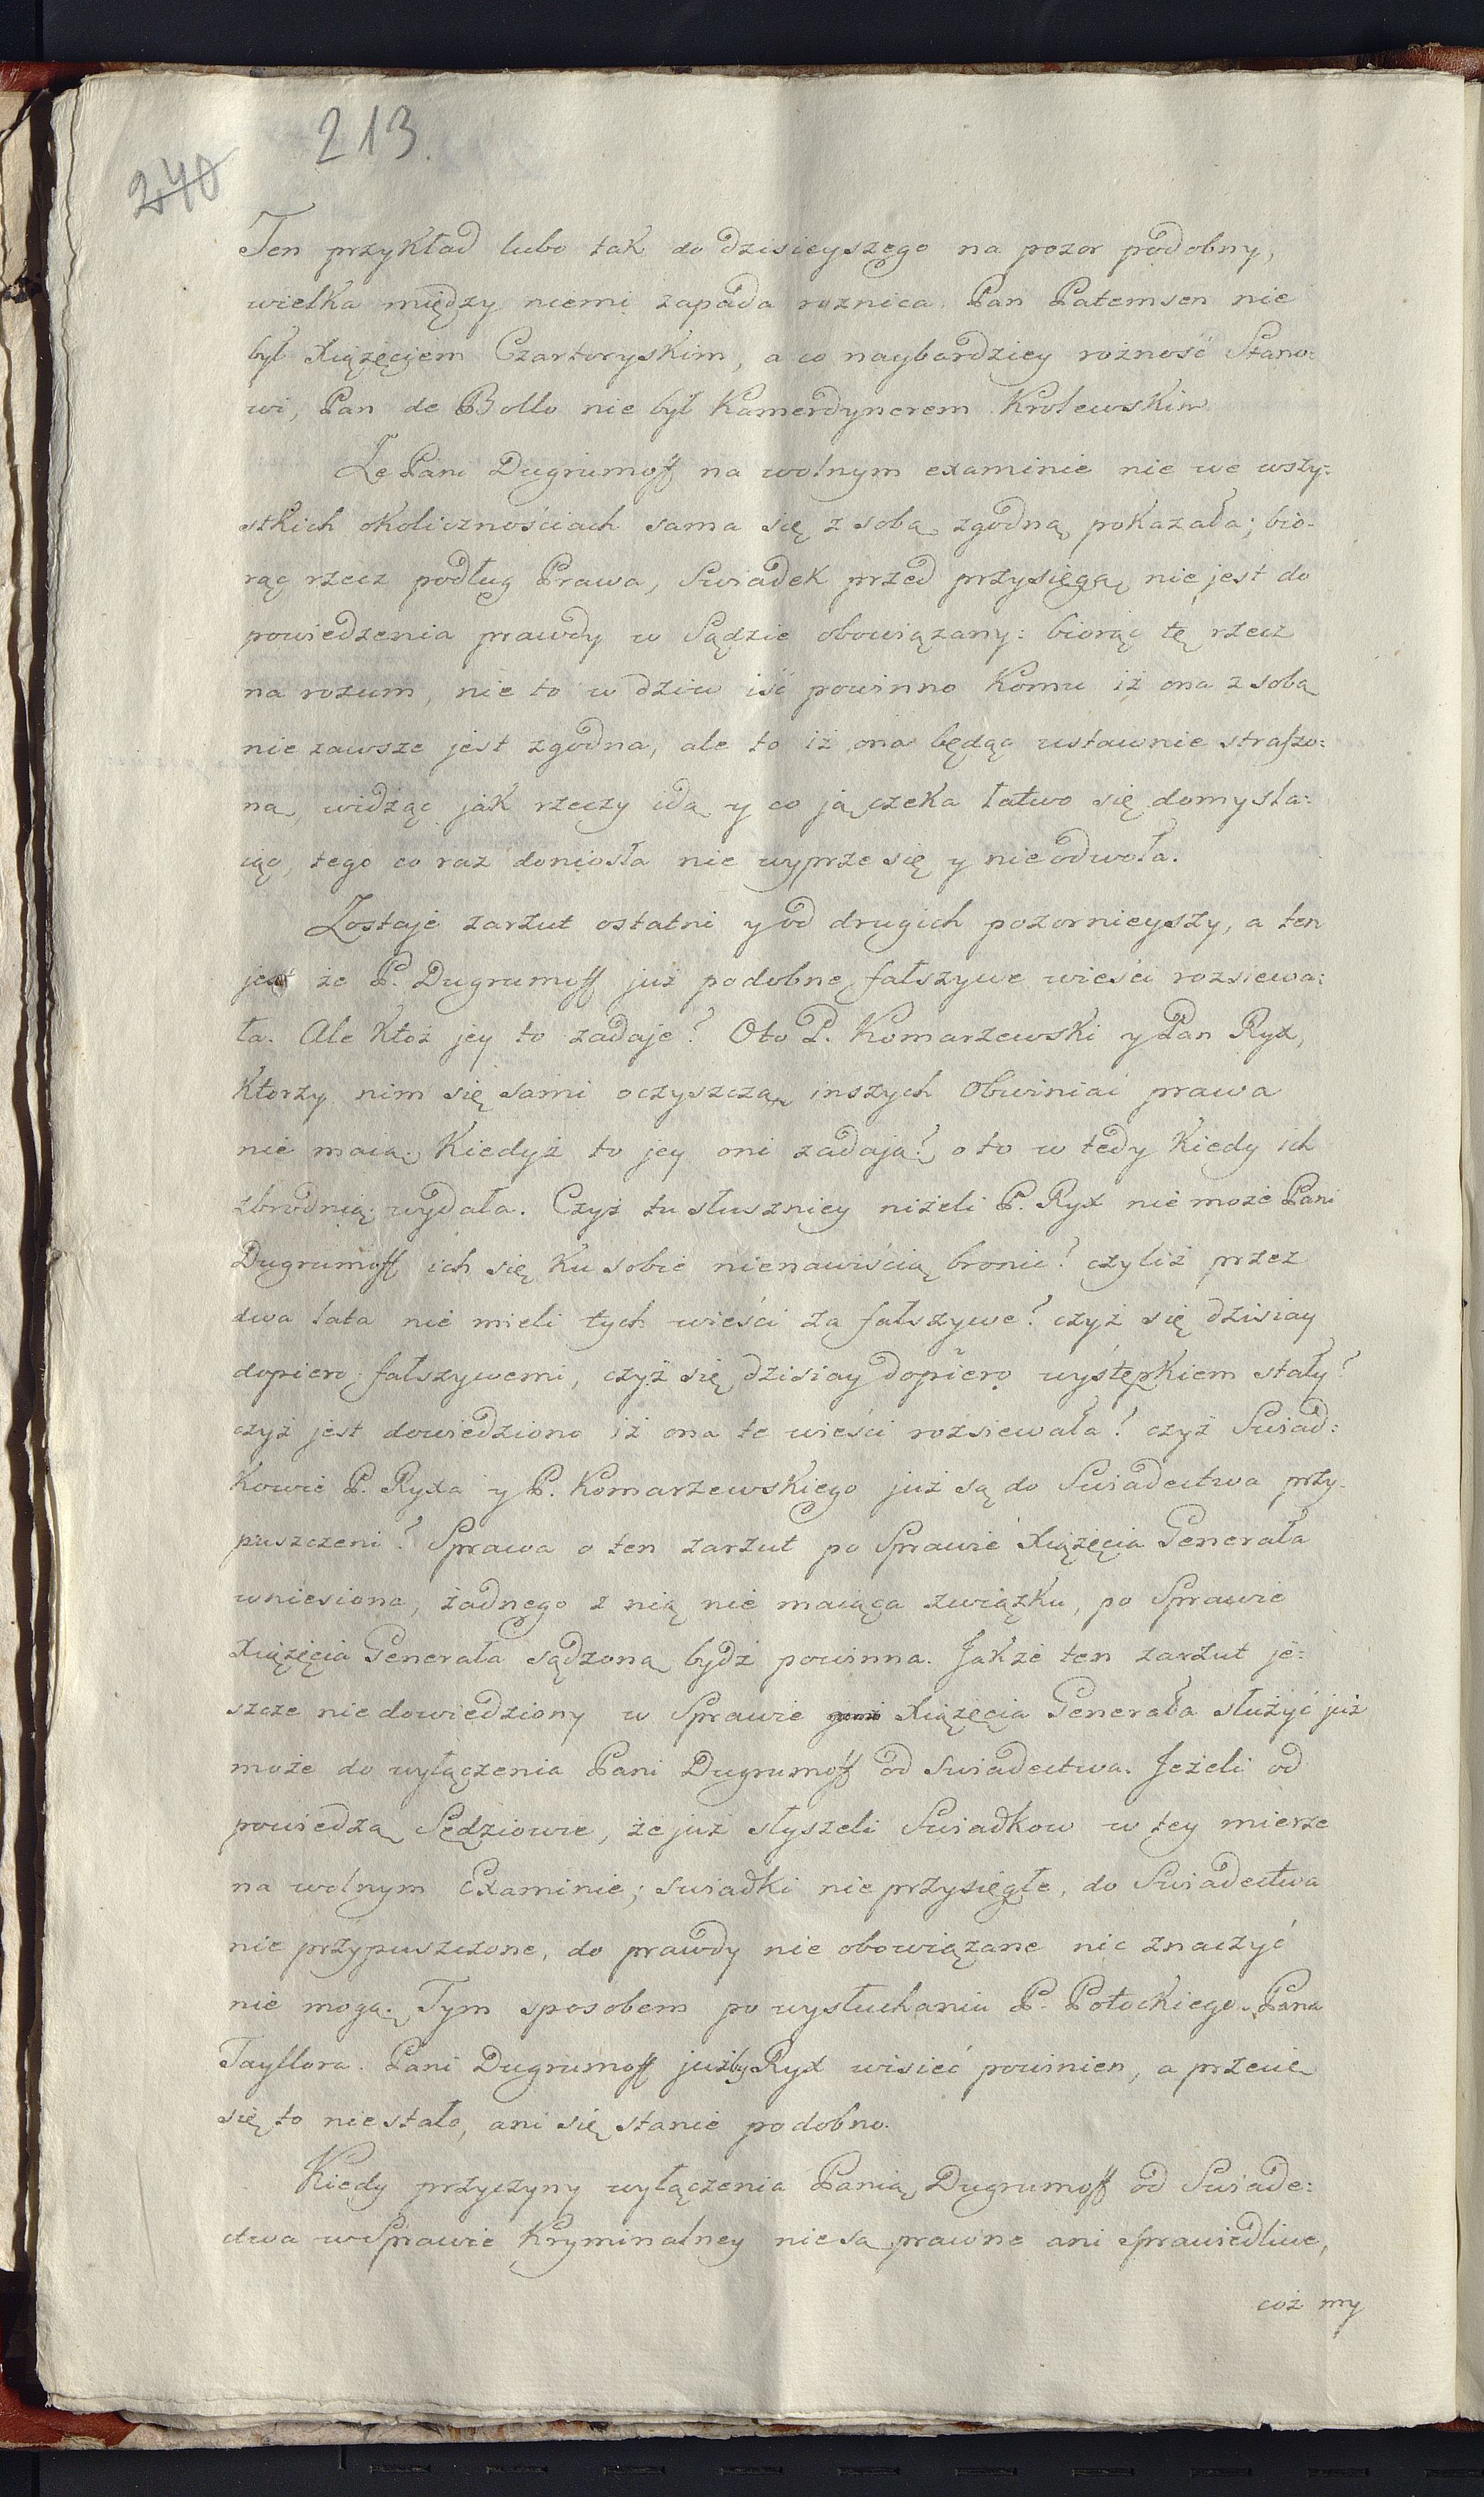 213.
240
Ten przykład lubo tak do dzisieyszego na pozor podobny,
wielka między niemi zapada roznica. Pan Patemsen nie
był Xiążęciem Czartoryskim, a co naybardziey rożność Stano:
wi, Pan de Bollo nie był Kamerdynerem Krolewskim
Że Pani Dugrumoff na wolnym examinie nie we wszy:
stkich okolicznościach sama się z sobą zgodną pokazała; bio-
rąc rzecz podług Prawa, Swiadek przed przysięgą nie jest do
powiedzenia prawdy w Sądzie obowiązany: biorąc tę rzecz
na rozum, nie to w dziw iść powinno komu iż ona z sobą
nie zawsze jest zgodna, ale to iż ona będąc ustawnie straszo:
na, widząc jak rzeczy idą y co ją czeka łatwo się domysla:
iąc, tego co raz doniosła nie wyprze się y nie odwoła.
Zostaje zarzut ostatni y od drugich pozornieyszy, a ten
jest że P. Dugrumoff już podobne fałszywe wieści rozsiewa:
ła. Ale ktoż jey to zadaje? Oto P. Komarzewski y Pan Ryx,
ktorzy nim się sami oczyszczą, inszych obwiniać prawa
nie maią. Kiedyż to jey oni zadają? oto w tedy kiedy ich
zbrodnią wydała. Czyż tu słuszniey niżeli P. Ryx nie może Pani
Dugrumoff ich się ku sobie nienawiścią bronić? czyliż przez
dwa lata nie mieli tych wieści za fałszywe? czyż się dzisiay
dopiero fałszywemi, czyż się dzisiay dopiero występkiem stały?
czyż jest dowiedziono iż ona te wieści rozsiewała? czyż Swiad:
kowie P. Ryxa y P. Komarzewskiego już są do Swiadectwa przy-
puszczeni? Sprawa o ten zarzut po Sprawie Xiążęcia Generała
wniesiona, żadnego z nią nie maiąca związku, po Sprawie
Xiążęcia Generała sądzona bydź powinna. Jakże ten zarzut je:
szcze nie dowiedziony w Sprawie Xiążęcia Generała służyć już
może do wyłączenia Pani Dugrumoff od swiadectwa. Jeżeli od
powiedzą Sędziowie, że już słyszeli Swiadkow w tey mierze
na wolnym Examinie; swiadki nie przysięgłe, do Swiadectwa
nie przypuszczone, do prawdy nie obowiązane nic znaczyć
nie mogą. Tym sposobem po wysłuchaniu P. Potockiego, Pana
Tayllora. Pani Dugrumoff jużby Ryx wisieć powinien, a przecie
się to nie stało, ani się stanie podobno.
Kiedy przyczyny wyłączenia Panią Dugrumoff od Swiade:
ctwa w Sprawie Kryminalney nie są prawne ani sprawiedliwe,
coż my